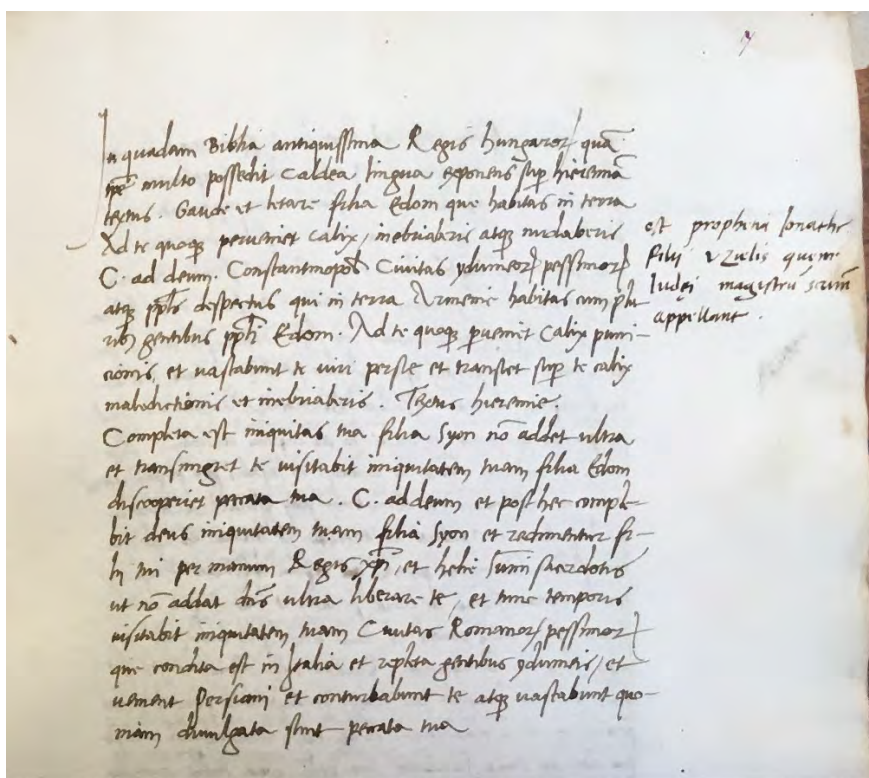 In quadam Biblia antiquissima Regis hungaror quā
tpe multo possedit Caldea lingua exponens sup hieremiā
textus. Gaude et letare filia Edom que habitas in terra
Ad te quoqз perueniet calix, inebriaberis atqз nudaberis
C. ad deum. Constantinopol Ciuitas ydumeor pessimor
atqз ppls despectus qui in terra Armenie habitas cum plu
ribз gentibus ppli Edom. Ad te quoqз pueniet calix puni-
cionis, et uastabunt te uiri perse et transiet sup te calix
maledictionis et inebriaberis. Textus hieremie.
Completa est iniquitas tua filia Syon nō addet ultra
et transmigret te uisitabit iniquitatem tuam filia Edom
discooperiet peccata tua. C. ad deum et post hec comple-
bit deus iniquitatem tuam filia Syon et redimentur fi-
lii tui per manum Regis xpi, et helie sumi sacerdotis
ut nō addat dns ultra liberare te, et tunc temporis
uisitabit iniquitatem tuam Ciuitas Romanor pessimor
que condita est in Italia et repleta gentibus ydumeis, et
uenient Persiani et conturbabunt te atqз uastabunt quo-
niam diuulgata sunt peccata tua
est prophetia Ionathe
filij vzielis quem
Iudęi magistrū suum
appellant.